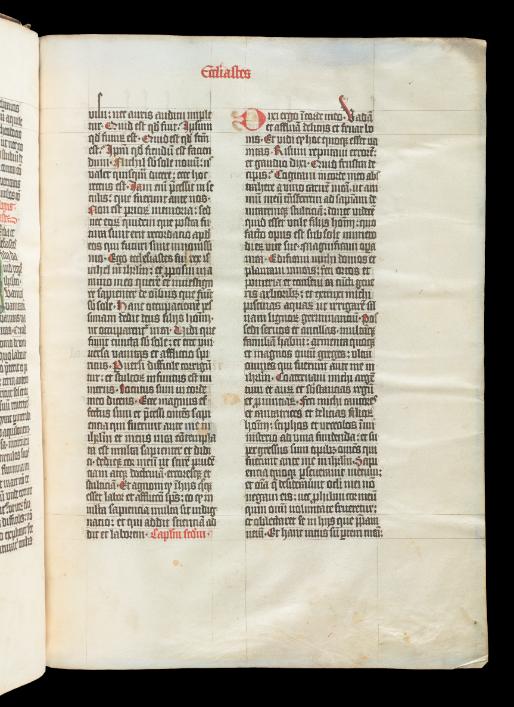 Ecclesiastes
oculus uisu; nec auris auditu imple
tur. Quid est qd fuit? Ipsum
qd futurū est. Quid est qd factū
est? Ipm qd faciendū est. Nichil sub sole nouū; n
ualet quisquam dicere; ecce hoc
recens est. Iam em p̄cessit in se
culis; que fuerunt ante nos.
Non est prioꝝ memoria; sed
nec eoꝝ quidem que postea fu
tura sunt erit recordatio apud
eos qui futuri sunt in nouissi
mo. Ego ecclesiastes fui rex is
rahel in ihrlm; et pposui in a
nimo meo querere et inuestiga
re sapienter de oībus que fiūt
sub sole. Hanc occupationē pes
simam dedit deus filijs hoīm;
ut occuparent' in ea. Uidi que
fiunt cuncta sub sole; et ecce uni
uersa uanitas et afflictio spi
ritus. Peruersi difficile corrigūt
tur; et stultoꝝ infinitus est nu
merus. Locutus sum in corde
meo dicens. Ecce magnus ef
fectus sum et p̄cessi omēs sapi
entia qui fuerunt ante me in
ihrlm et mens mea cōtemplata
est multa sapienter et didi
ci. dediqꝫ cor meū ut scirē prudē
tiam atqꝫ doctrinā erroresqꝫ et
stulticiā. Et agnoui qd in hijs quoqꝫ
esset labor et afflictio sps; eo qd in
multa sapientia multa sit indig
natio; et qui addit scientiā ad
dit et laborem. Capitlm scdm.
Dixi ego in corde meo. Vadā
et affluā delicijs et fruar bo
nis. Et uidi qd hoc quoqꝫ esset ua
nitas. Risum reputaui errorē;
et gaudio dixi. Quid frustra de
ciperis? Cogitaui in corde meo abs
trahere a uino carnē meā; ut ani
mū meū transferrem ad sapiam de
uitaremqꝫ stulticiā; donec uiderē
quid esset utile filijs hoīm; quo
facto opus est sub sole numero
dierū uite sue. Magnificaui ope
ra mea. Edificaui michi domos et
plantaui uineas; feci ortos et
pomeria et conseui ea cūcti gene
ris arboribꝫ; et extruxi michi
piscinas aquaꝝ ut irrigarē sil
uam lignoꝝ germinantiū. Pos
sedi seruos et ancillas; multāqꝫ
familiā habui; armenta quoqꝫ
et magnos ouiū greges; ultra
omnes qui fuerunt ante me in
ihrlm. Coaceruaui michi argē
tum et aurū et substantias regū
et prouinciaꝝ. Feci michi cantores
et cantatrices et delicias filioꝝ
hoīm; sciphos et urceolos in mi
nisterio ad uina fundenda; et su
pergressus sum opibꝫ omēs qui
fuerunt ante me in ihrlm. Sapi
entia quoqꝫ pseuerauit mecum;
et omīa q̄ desiderauerunt oculi mei nō
negaui eis; nec phibui cor meū
quin omi uoluptate frueretur;
et oblectaret se in hijs que ppara
ueram. Et hanc ratus sū partem meā;